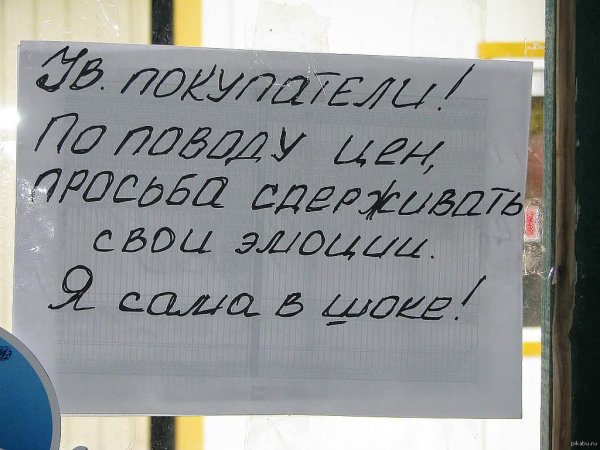 Ув. покупатели!
По поводу цен,
просьба сдерживать
свои эмоции.
Я сама в шоке!
pikabu.ru